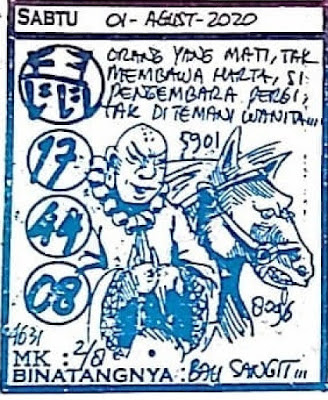 SABTU 01-AGUST-2020
ORANG YANG MATI, TAK
MEMBAWA HARTA, SI
PENGEMBARA PERGI,
TAK DITEMANI WANITA...
5901
17
44
08
8096
4631
MK : 2/8
BINATANGNYA : BAU SANGIT...